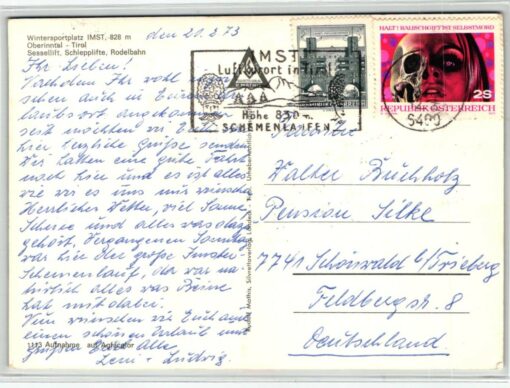 Wintersportplatz IMST, 828 m
Oberinntal - Tirol
Sessellift, Schlepplifte, Rodelbahn
den 20.2.73
Ihr Lieben!
Nachdem Ihr wohl
schon auch in
laubsort angekommen
seit möchten wir
hier herzliche Grüße senden
Wir hatten eine gute Fahrt
nach hier und es ist alles
wie wir es uns nur wünschen
Herrliches Wetter, viel Sonne
Schnee und alles was dazu
gehört. Vergangenen Sonntag
war hier der große Imster
Schemenlauf, da war na-
türlich alles was Beine
hat mit dabei.
Nun wünschen wir Euch auch
einen schönen Urlaub und
Grüßen Euch Alle
Leni + Ludwig
1113 Aufnahme auf Agfacolor
Rudolf Mathis, Silvrettaverlag, Landeck - Tirol
IMST
Luftkurort in Tirol
Höhe 830 m
SCHEMENLAUFEN
HALT! RAUSCHGIFT IST SELBSTMORD
2S
REPUBLIK ÖSTERREICH
Familie
Walter Buchholz
Pension Silke
7741 Schönwald b/Triberg
Feldbergstr. 8
Deutschland.